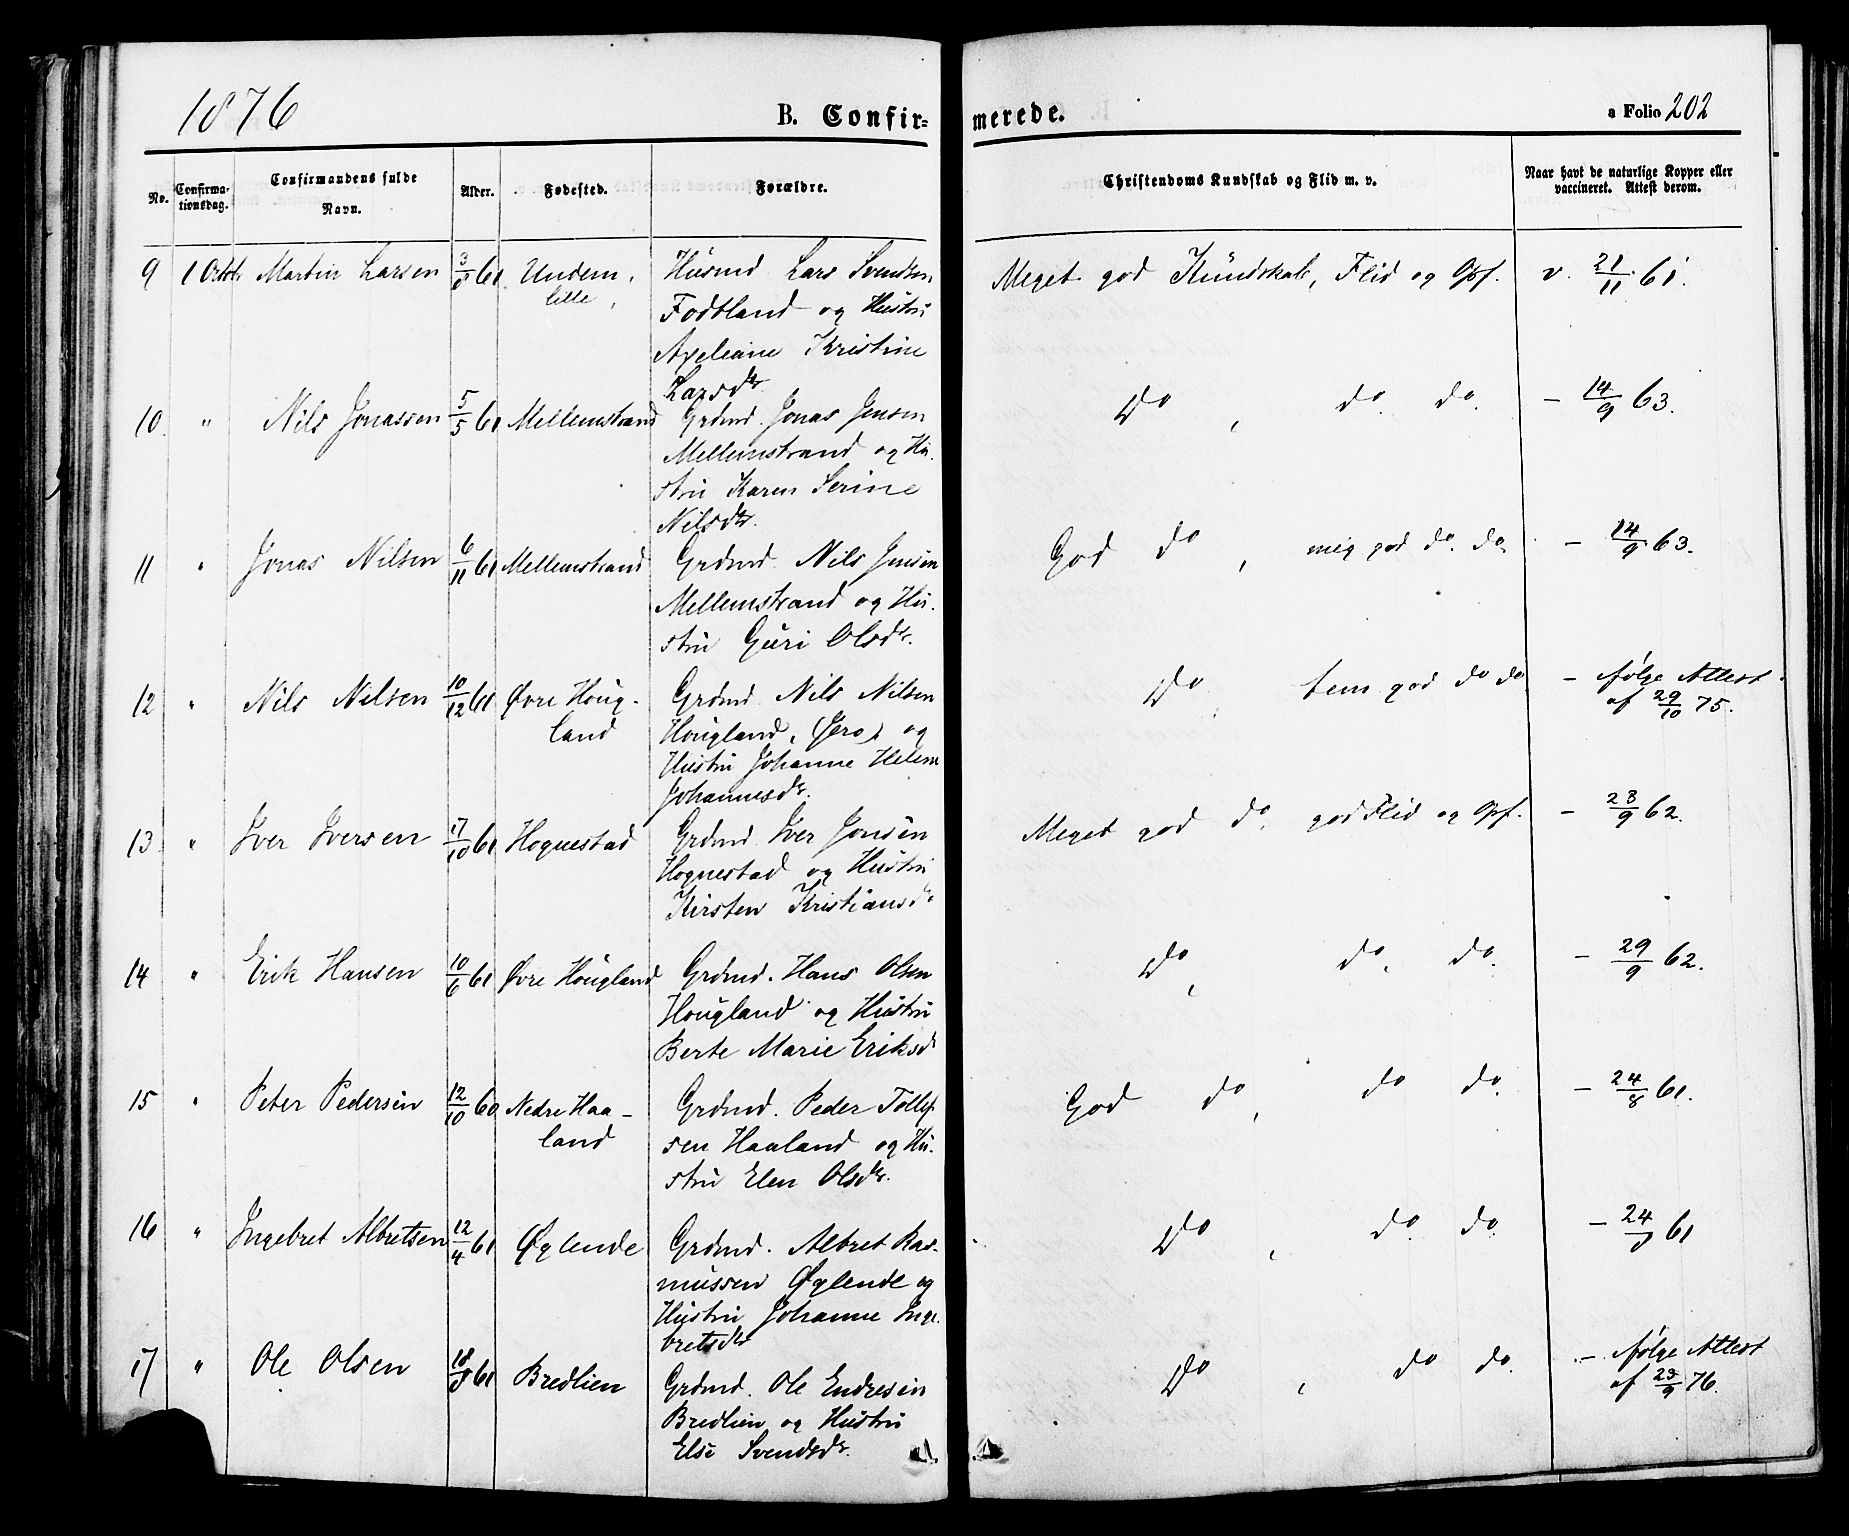 1876 B. Confirmerede. a Folio 202
No. Confirmationsdag. Confirmandens fulde Navn. Alder. Fødested. Forældre. Christendoms Kundskab og Flid m. v. Naar havt de naturlige Kopper eller vaccineret. Attest derom.
9 1 Octob. Martin Larsen 3/8 61 Undem, Husmd Lars Svendsen Meget god Kundskab, Flid og Opf. v. 21/11 61.
lille, Fodtland og Hustru
Axeliane Kristine
Larsdtr
10. " Nils Jonassen 5/5 61 Mellemstrand Grdmd. Jonas Jensen Do, do. do. - 14/9 63.
Mellemstrand og Hu-
stru Karen Serine
Nilsdtr.
11 " Jonas Nilsen 6/11 61 Mellemstrand Grdmd. Nils Jensen God do, meg god do. do. - 14/9 63.
Mellemstrand og Hu-
stru Guri Olsdr.
12 " Nils Nilsen 10/12 61 Øvre Houg- Grdmd. Nils Nilsen Do, tem god do do - følge Attest
land Hougland, og af 29/10 75.
Hustru Johanne Helene
Johannesdr.
13 " Iver Iversen 17/10 61 Hognestad Grdmd. Iver Jonsen Meget god do, god Flid og Opf. - 23/9 62.
Hognestad og Hustru
Kirsten Kristiansdr
14 " Erik Hansen 10/6 61 Øvre Hougland Grdmd. Hans Olsen Do, do, do. - 29/9 62.
Hougland og Hustru
Berte Marie Eriksd
15 " Peter Pedersen 12/10 60 Nedre Haa- Grdmd. Peder Tollef God do, do do. - 24/8 61.
land sen Haaland og Hu-
stru Elen Olsdtr.
16 " Ingebret Albretsen 12/4 61 Øglende Grdmd. Albret Ras- Do, do. do. - 24/8 61
mussen Øglende og
Hustru Johanne Inge-
bretsdtr
17 " Ole Olsen 18/8 61 Bredlien Grdmd. Ole Endresen Do, do do. - følge Attest
Bredlien og Hustru af 23/9 76.
Else Svendsdr.